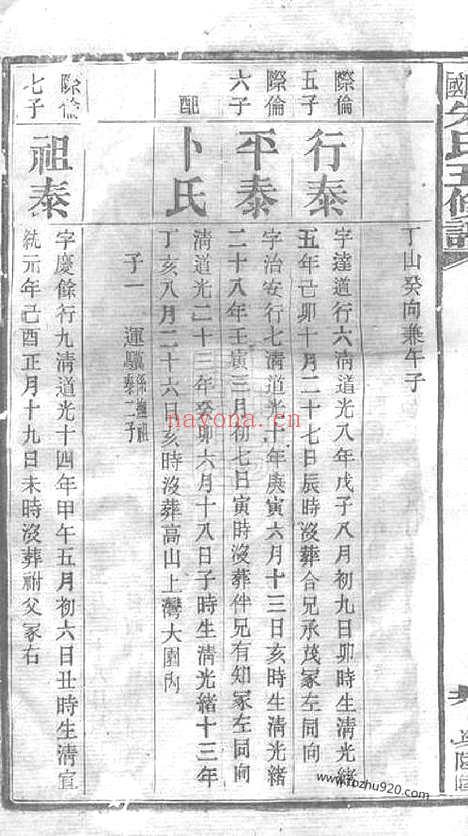 丁山癸向兼午子
際倫
五子
行泰
字達道行六清道光八年戊子八月初九日卯時生清光緒
五年己卯十月二十七日辰時沒葬合兄承茂冢左同向
際倫
六子
平泰
字治安行七清道光十年庚寅六月十三日亥時生清光緒
二十八年壬寅三月初七日寅時沒葬伴兄有知冢左同向
配
卜氏
清道光二十三年癸卯六月十八日子時生清光緒十三年
丁亥八月二十六日亥時沒葬高山上灣大園內
子一
際倫
七子
祖泰
字慶餘行九清道光十四年甲午五月初六日丑時生清宣
統元年己酉正月十九日未時沒葬祔父冢右
nayona.cn
www.tozhu920.com